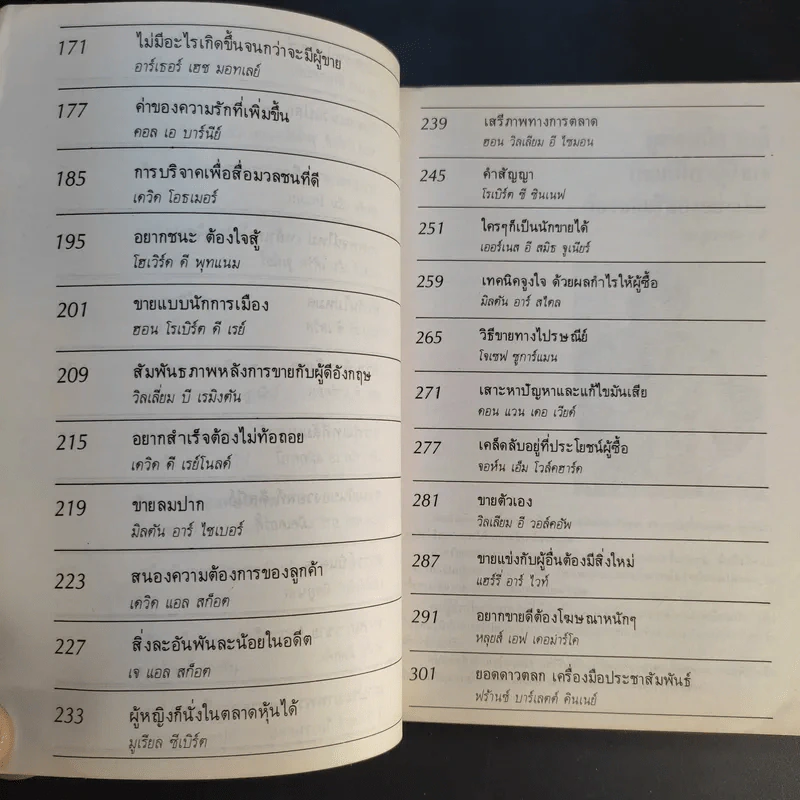 171 ไม่มีอะไรเกิดขึ้นจนกว่าจะมีผู้ขาย
อาร์เธอร์ เฮช มอทเลย์
177 ค่าของความรักที่เพิ่มขึ้น
คอล เอ บาร์นีย์
185 การบริจาคเพื่อสื่อมวลชนที่ดี
เดวิด โอธเมอร์
195 อยากชนะ ต้องใจสู้
โฮเวิร์ด ดี พุทแนม
201 ขายแบบนักการเมือง
ฮอน โรเบิร์ต ดี เรย์
209 สัมพันธภาพหลังการขายกับผู้ดีอังกฤษ
วิลเลี่ยม บี เรมิงตัน
215 อยากสำเร็จต้องไม่ท้อถอย
เดวิด ดี เรย์โนลด์
219 ขายลมปาก
มิลตัน อาร์ ไชเบอร์
223 สนองความต้องการของลูกค้า
เดวิด แอล สก็อต
227 สิ่งละอันพันละน้อยในอดีต
เจ แอล สก็อต
233 ผู้หญิงก็นั่งในตลาดหุ้นได้
มูเรียล ซีเบิร์ต
239 เสรีภาพทางการตลาด
ฮอน วิลเลียม อี ไซมอน
245 คำสัญญา
โรเบิร์ต ซี ซินเนฟ
251 ใครๆก็เป็นนักขายได้
เออร์เนส อี สมิธ จูเนียร์
259 เทคนิคจูงใจ ด้วยผลกำไรให้ผู้ซื้อ
มิลตัน อาร์ สไตล
265 วิธีขายทางไปรษณีย์
โจเซฟ ชูการ์แมน
271 เสาะหาปัญหาและแก้ไขมันเสีย
ดอน แวน เดอ เวียด์
277 เคล็ดลับอยู่ที่ประโยชน์ผู้ซื้อ
จอห์น เอ็ม โวล์คฮาร์ด
281 ขายตัวเอง
วิลเลียม อี วอล์คอัพ
287 ขายแข่งกับผู้อื่นต้องมีสิ่งใหม่
แฮร์รี่ อาร์ ไวท์
291 อยากขายดีต้องโฆษณาหนักๆ
หลุยส์ เอฟ เดอม่าร์โค
301 ยอดดาวตลก เครื่องมือประชาสัมพันธ์
ฟร้านซ์ บาร์เลตต์ คินเนย์